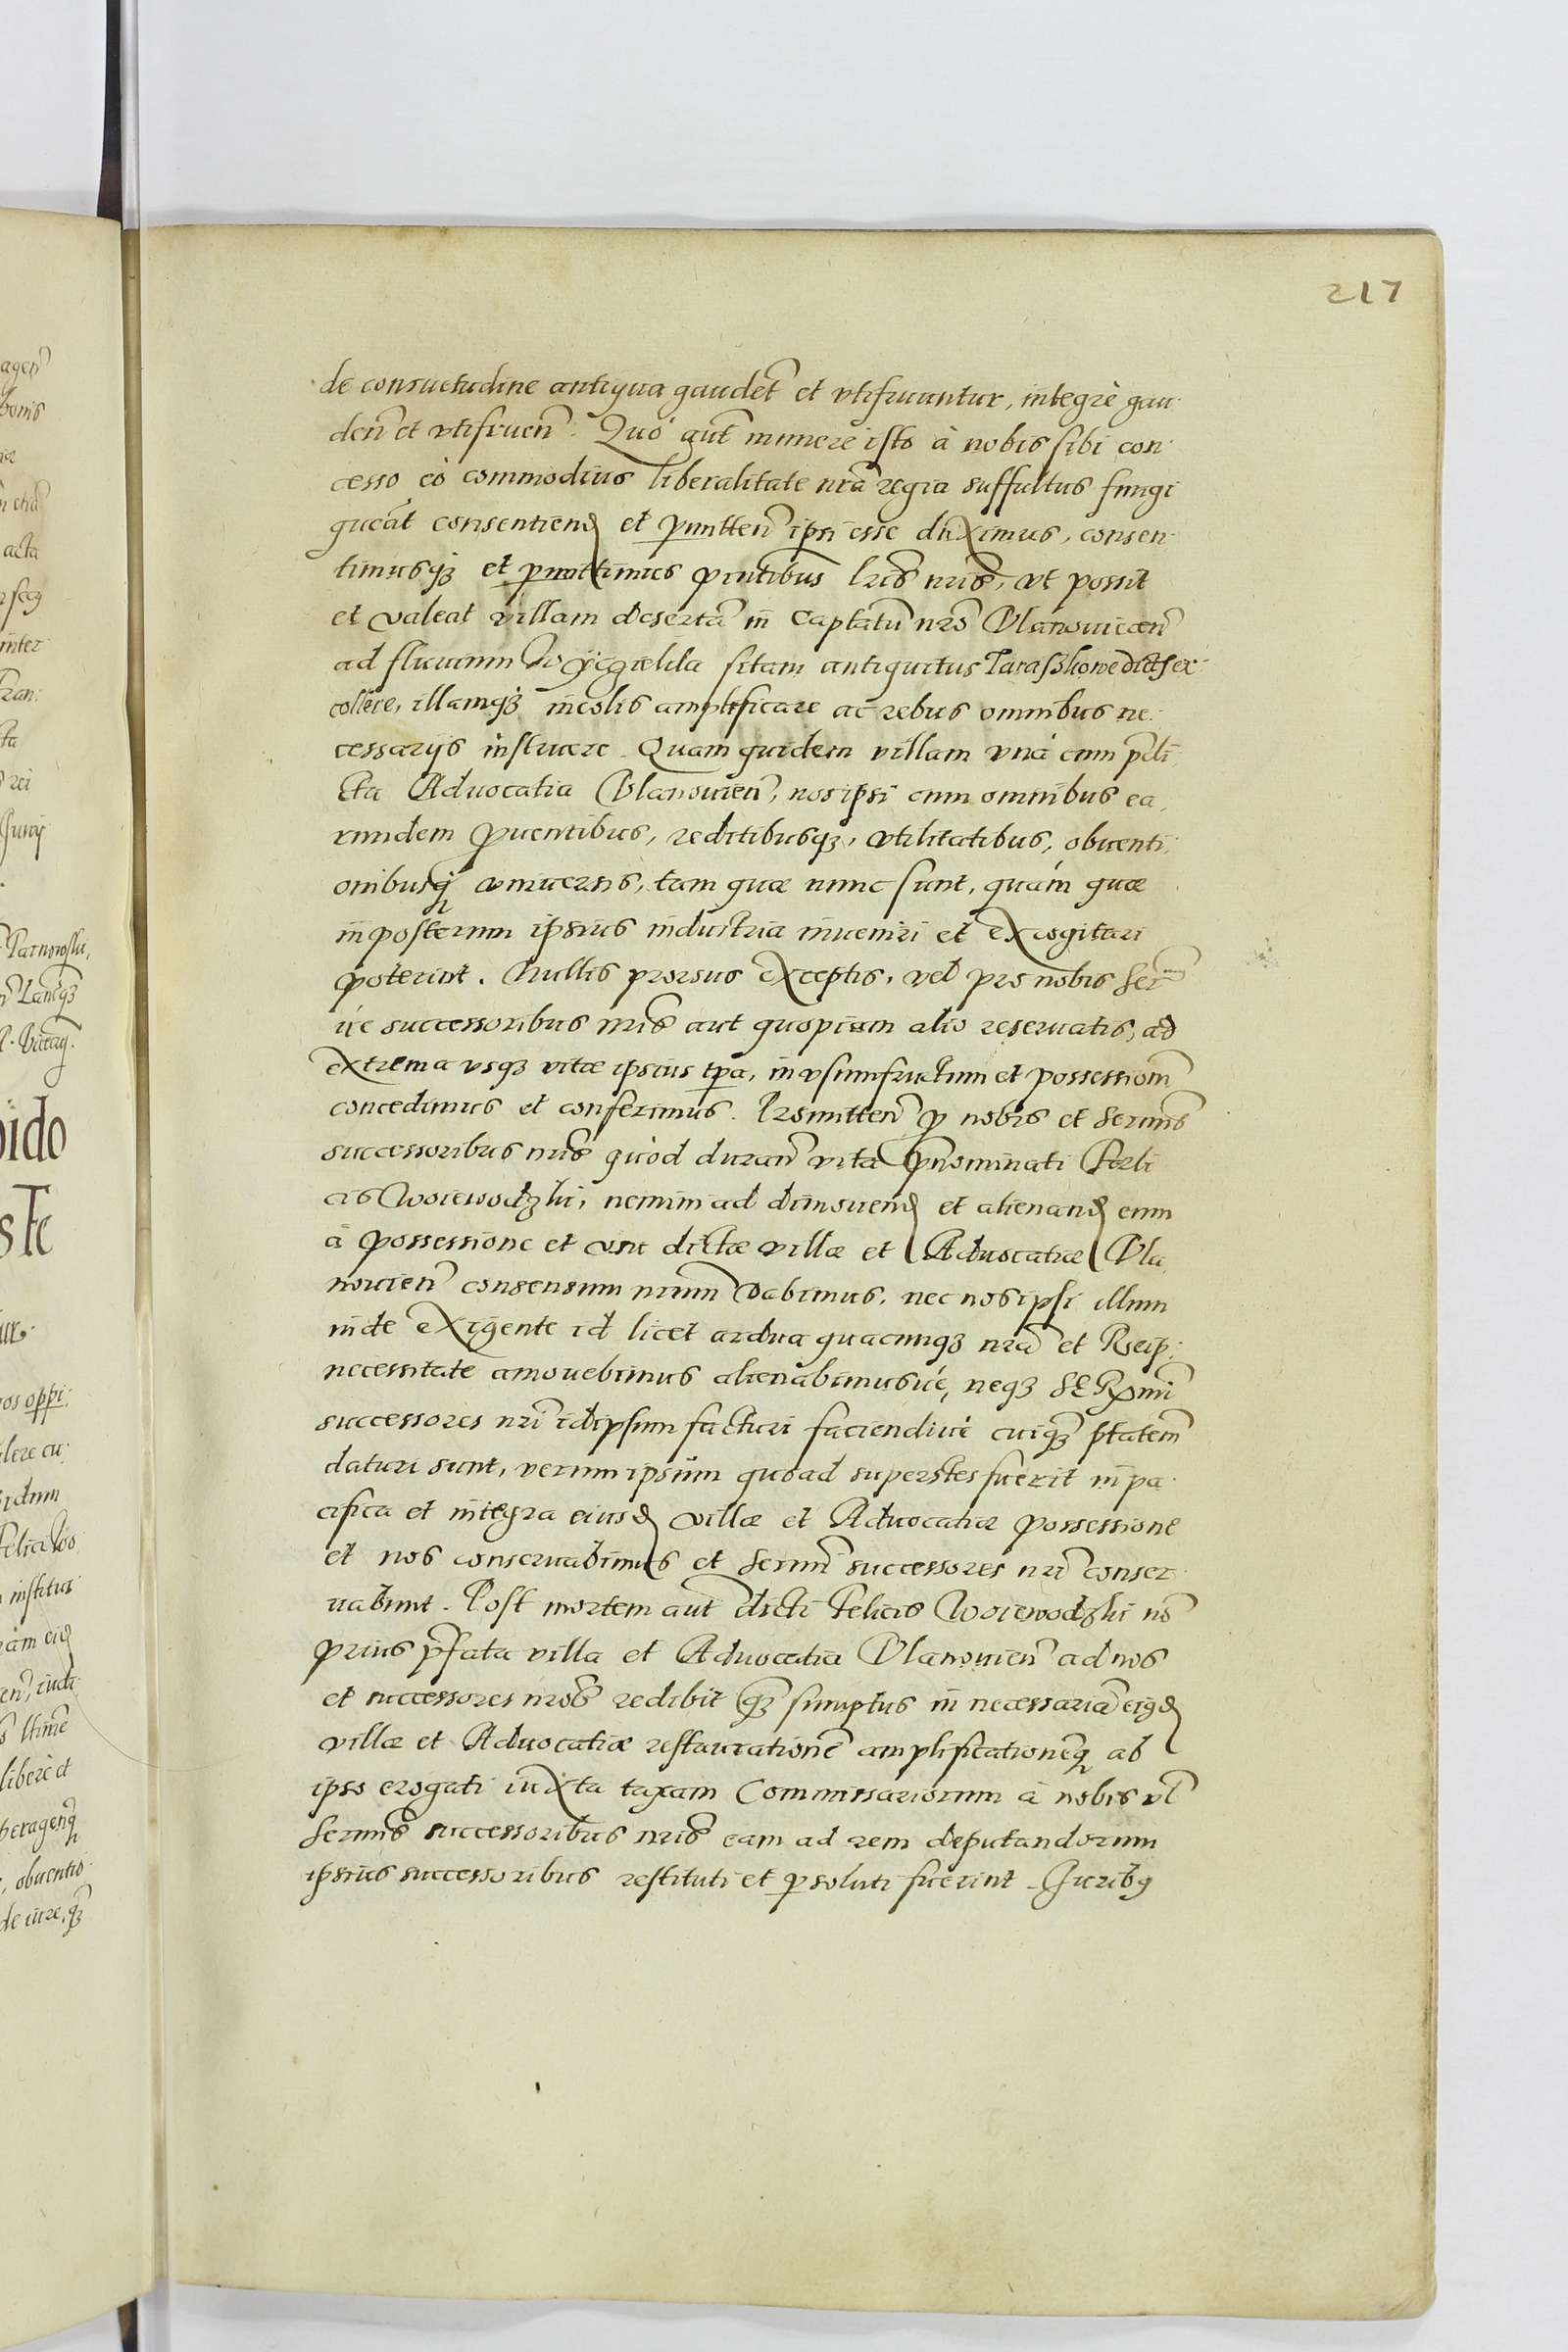 217
de consuetudine antiqua gaudēt et vtifruuntur, integrè gau
deñ et vtifrueñ. Quò aut̃ munere isto à nobis sibi con
cesso eò commodius liberalitate nr̃a regia suffultus fungi
queat consentiend et p̱mitteñ ipsi esse duximus, consen
timusq₃ et p̱mittimus pñtibus lr̃is nr̃is, vt possit
et valeat villam desertã in Captatũ nr̃o Vlanouiceñ
ad fluuium sitam antiquitus Taraszkowe dictã ex
collere, illamq₃ incolis amplificare ac rebus omnibus ne
cessarijs instruere. Quam quidem villam vnà cum p̃di
cta Aduocatia Vlanouieñ, nos ipsi cum omnibus ea
rundem ꝓuentibus, reditibusq₃, vtilitatibus, obuenti
onibusq₃ vniuersis, tam quæ nunc sunt, quám quæ
in posterum ipsius industria inueniri et excogitari
poterint. Nullis prorsus exceptis, vel pro nobis Ser̃mis
ùe successoribus nr̃is aut quopiam alio reseruatis, ad
extrema vsq₃ vitæ ipsius tp̃a, in vsumfructum et possessionẽ
concedimus et conferimus. Promitteñ ꝓ nobis et Ser̃mis
successoribus nr̃is quòd durañ vita p̃nominati Fæli
cis Woiewodzki, nemini ad dimouend et alienand eum
à possessione et vsu dictæ villæ et Aduocatiæ Vla
nouieñ consensum nr̃um dabimus, nec nos ipsi illum
inde exigente id licet ardua quacunq₃ nr̃a et Reip:
necessitate amouebimus alienabimusué, neq₃ SERẽmi
successores nr̃i idipsum facturi faciendiué cuiq₃ p̃tatem
daturi sunt, verum ipsum quoad superstes fuerit in pa
cifica et integra eiusd villæ et Aduocatiæ possessione
et nos conseruabimus et Ser̃mi successores nr̃i conser
uabunt. Post mortem aut̃ dicti Felicis Woiewodzki nõ
prius p̃fata villa et Aduocatia Vlanouieñ ad nos
et successores nr̃os redibit q₃ sumptus in necessariã eiusd
villæ et Aduocatiæ restaurationẽ amplificationeq₃ ab
ipso erogati iuxta taxam Commissariorum à nobis vl̃
Ser̃mis successoribus nr̃is eam ad rem deputandorum
ipsius successoribus restituti et p̱soluti fuerint. Iuribꝰ